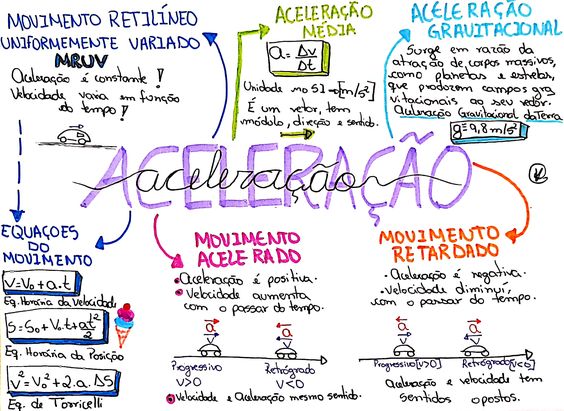 MOVIMENTO RETILÍNEO
UNIFORMEMENTE VARIADO
MRUV
Aceleração é constante!
Velocidade varia em função
do tempo!
ACELERAÇÃO
MÉDIA
a = Δv/Δt
Unidade no SI → [m/s²]
É um vetor, tem
módulo, direção e sentido.
ACELERAÇÃO
GRAVITACIONAL
Surge em razão da
atração de corpos massivos,
como planetas e estrelas,
que produzem campos gra
vitacionais ao seu redor.
Aceleração Gravitacional da Terra
g = 9,8 m/s²
ACELERAÇÃO
aceleração
EQUAÇÕES
DO
MOVIMENTO
v = v₀ + a.t
Eq. Horária da Velocidade
S = S₀ + V₀.t + at²/2
Eq. Horária da Posição
v² = v₀² + 2.a.ΔS
Eq. de Torricelli
MOVIMENTO
ACELERADO
• Aceleração é positiva.
• Velocidade aumenta
com o passar do tempo.
a a
v v
Progressivo Retrógrado
V>0 V<0
• Velocidade e Aceleração mesmo sentido.
MOVIMENTO
RETARDADO
• Aceleração é negativa.
• Velocidade diminui,
com o passar do tempo.
a a
v v
Progressivo[v>0] Retrógrado[v<0]
Aceleração e velocidade tem
sentidos opostos.